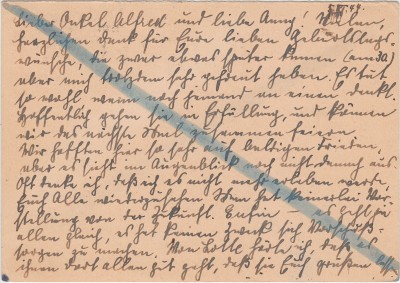 Lieber Onkel Alfred und liebe Anny! Vielen,
herzlichen Dank für Eure lieben Geburtstags-
wünsche, die zwar etwas später kamen (am 30.)
aber mich trotzdem sehr gefreut haben. Es tut
so wohl wenn noch jemand an einen denkt.
Hoffentlich gehen sie in Erfüllung, und können
wir das nächste Mal zusammen feiern.
Wir hofften hier so sehr auf baldigen Frieden,
aber es sieht im Augenblick noch nicht danach aus.
Oft denke ich, daß ich es nicht mehr erleben werde,
Euch Alle wiederzusehen. Man hat keinerlei Vor-
stellung von der Zukunft. es geht ja
allen gleich, es hat keinen Zweck sich Vorschuß-
sorgen zu machen. Von Lottl hörte ich, daß es
ihnen dort allen gut geht, daß sie Euch grüßen